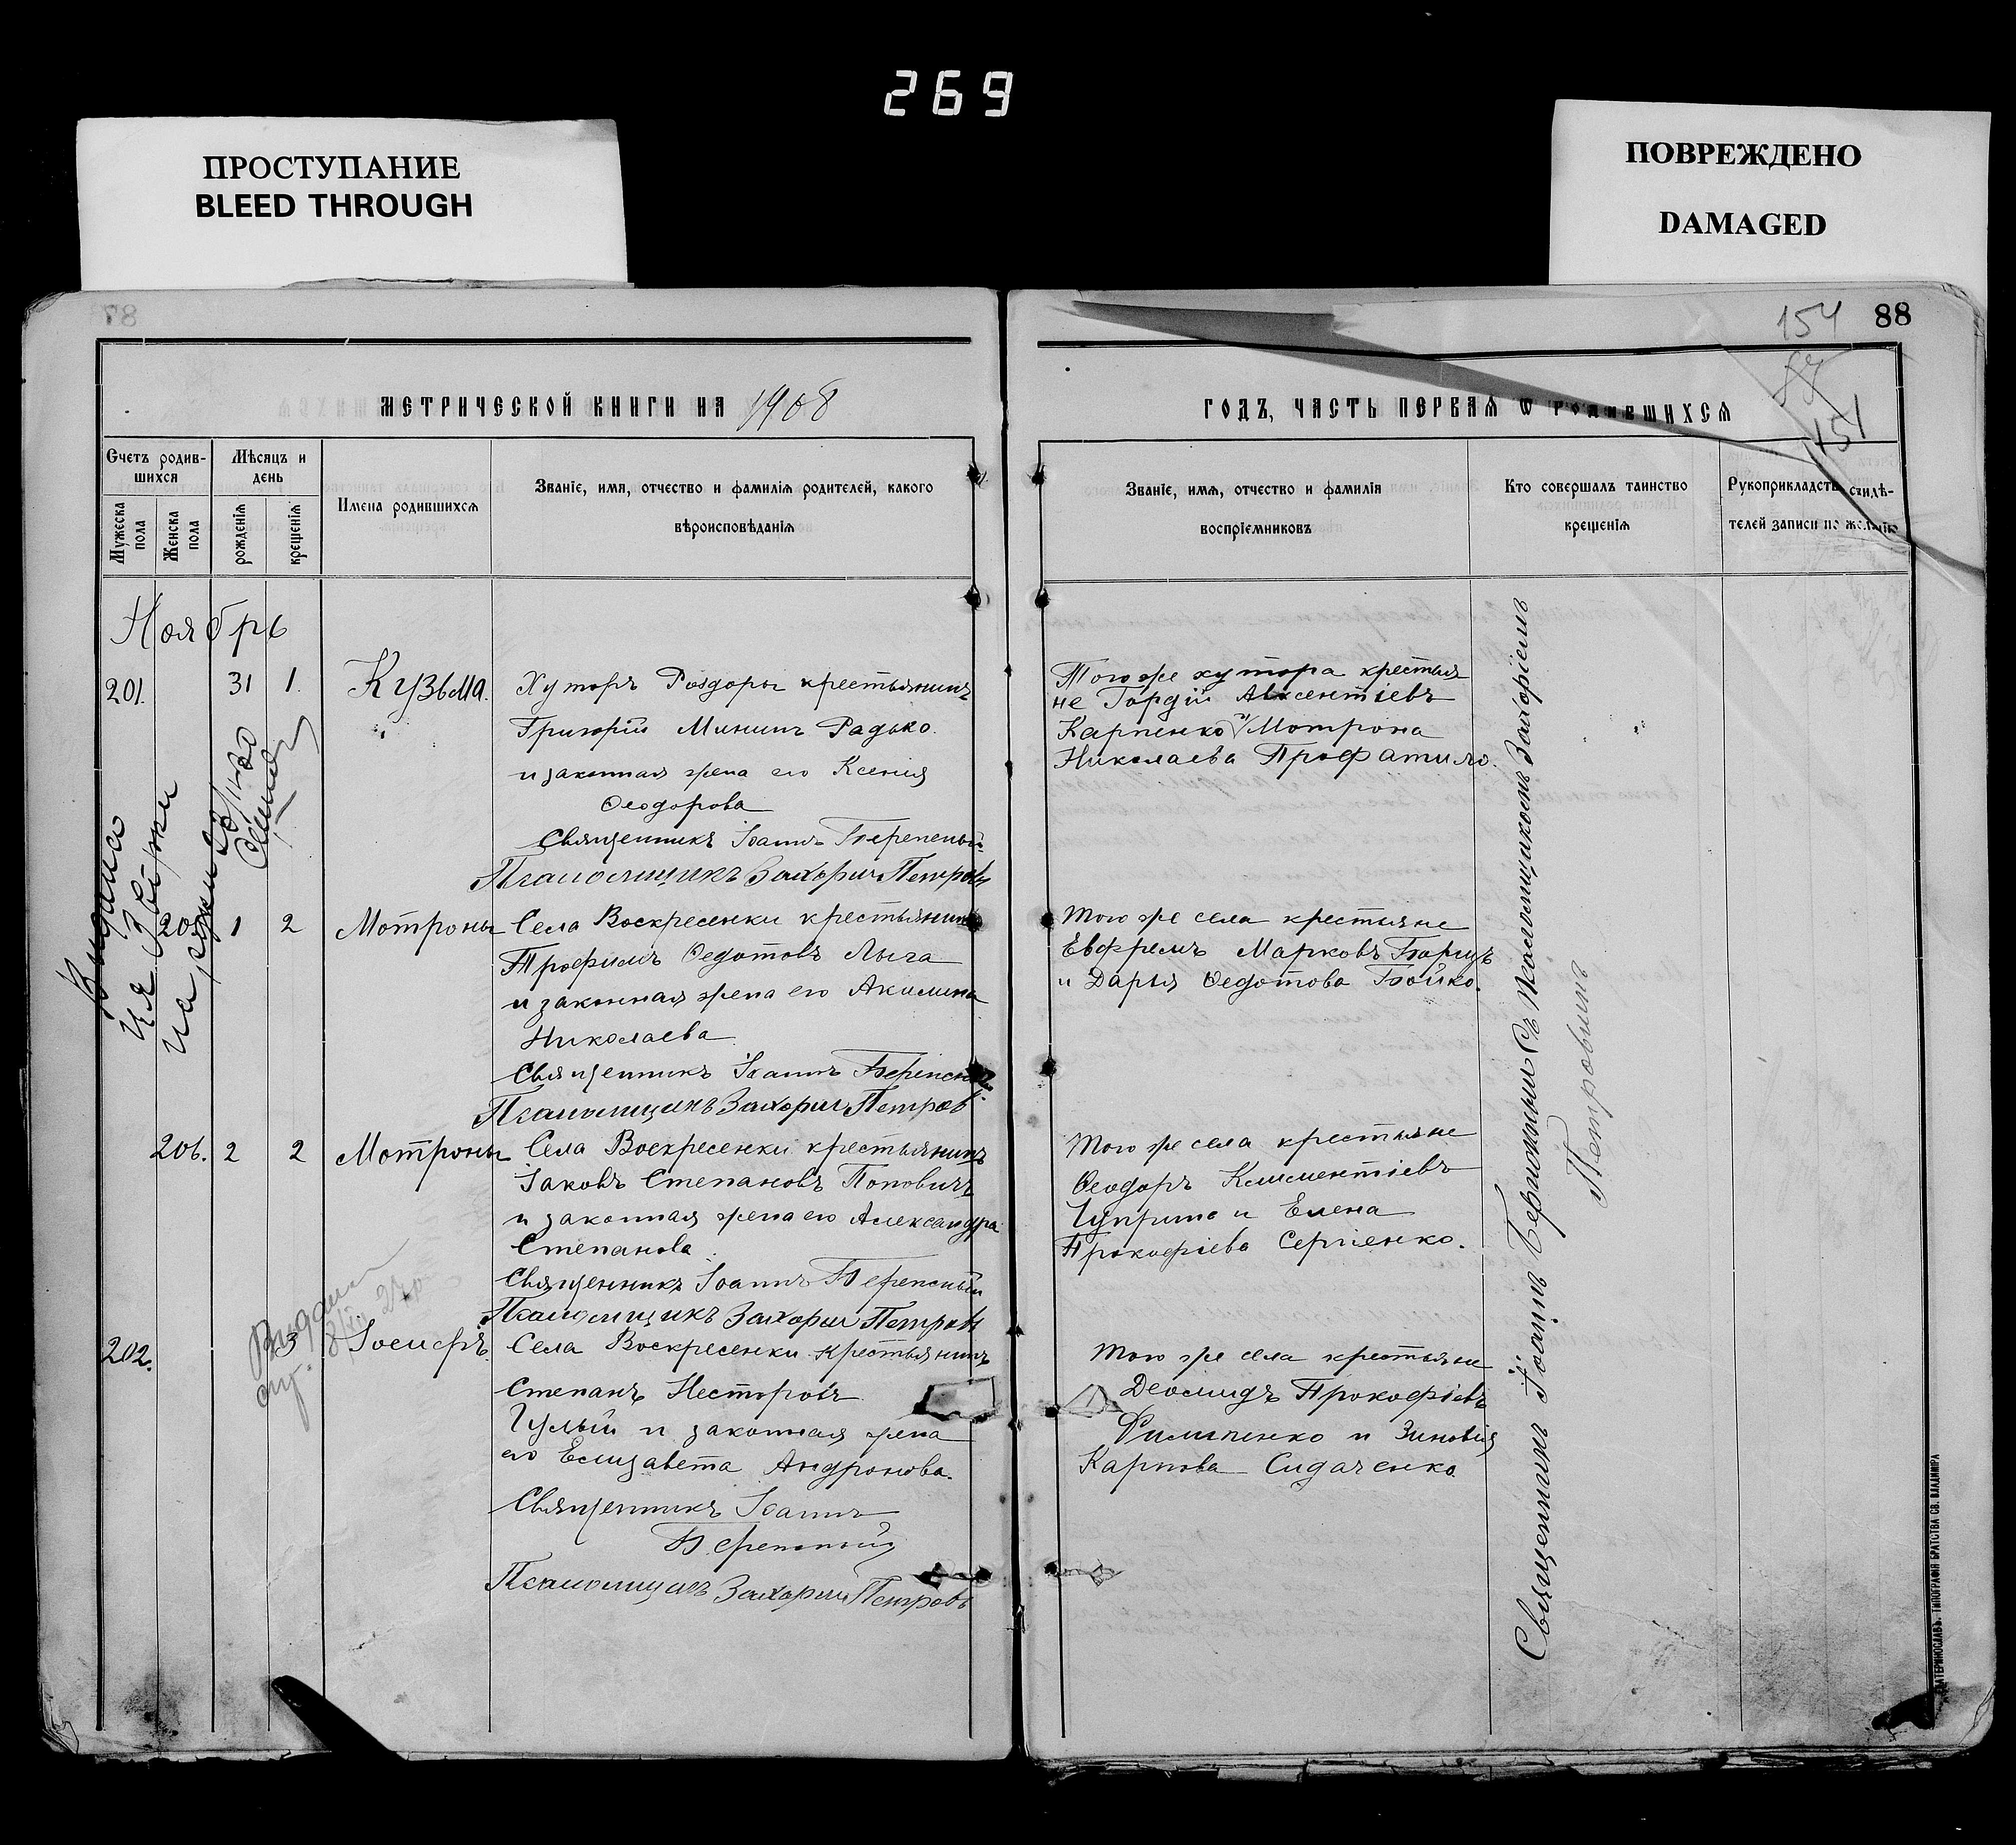 269
ПРОСТУПАНИЕ
BLEED THROUGH
ПОВРЕЖДЕНО
DAMAGED
154
88
87
151
МЕТРИЧЕСКОЙ КНИГИ НА 1908
ГОДЪ, ЧАСТЬ ПЕРВАЯ Ѡ РОДИВШИХСЯ
Счетъ родив-
шихся
Мѣсяцъ и
день
Мужеска
пола
Женска
пола
рожденія
крещенія
Имена родившихся
Званіе, имя, отчество и фамилія родителей, какого
вѣроисповѣданія
Званіе, имя, отчество и фамилія
воспріемниковъ
Кто совершалъ таинство
крещенія
Рукоприкладство свидѣ-
телей записи по желанію
Ноябрь
201. 31 1. Кузьма.
Хуторъ Роздоры крестьянинъ
Григорій Мининъ Радько.
и законная жена его Ксенія
Ѳеодорова
Священникъ Іоаннъ
Псаломщикъ Захорій Петровъ
Того же хутора крестья
не Гордій Авксентіевъ
Карпенко и Мотрона
Николаева
205 1 2 Мотроны
Села Воскресенки крестьянинъ
Трофимъ Ѳедотовъ Лыга
и законная жена его Акилина
Николаева
Священникъ Іоаннъ
Псаломщикъ Захорій Петровъ
Того же села крестьяне
Евфремъ Марковъ
и Дарья Ѳедотова Бойко.
206. 2 2 Мотроны
Села Воскресенки крестьянинъ
Іаковъ Степановъ Поповичъ
и законная жена его Александра
Степанова.
Священникъ Іоаннъ
Псаломщикъ Захорій Петровъ
Того же села крестьяне
Ѳеодоръ Климентіевъ
Чуприна и Елена
Прокофіева Сергіенко.
202. 3 Іосифъ.
Села Воскресенки крестьянинъ
Степанъ Несторовъ
Гулый и законная жена
его Елизавета Андронова.
Священникъ Іоаннъ
Псаломщикъ Захорій Петровъ
Того же села крестьяне
Деомидъ Прокофіевъ
Филипенко и Зиновія
Карпова Сидаченко
Священникъ Іоаннъ съ Псаломщикомъ Захоріемъ
Петровымъ
ЕКАТЕРИНОСЛАВЪ. ТИПОГРАФІЯ БРАТСТВА СВ. ВЛАДИМІРА